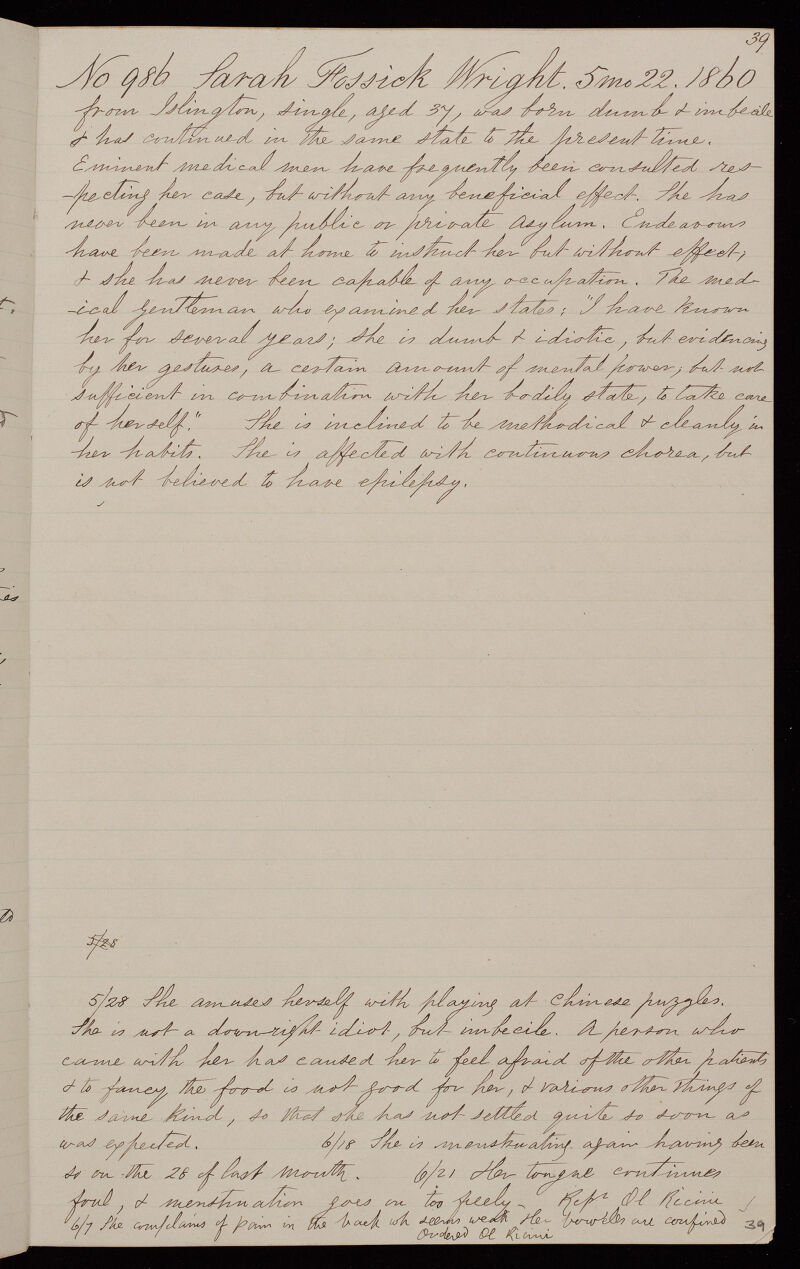 39
No 986 Sarah Fossick Wright. 5mo 22. 1860
from Islington, single, aged 37, was born dumb & imbecile
& has continued in the same state to the present time.
Eminent medical men have frequently been consulted res-
-pecting her case, but without any beneficial effect. She has
never been in any public or private asylum. Endeavours
have been made at home to instruct her but without effect,
& she has never been capable of any occupation. The med-
-ical gentleman who examined her states; "I have known
her for several years; she is dumb & idiotic, but evidencing
by her gestures, a certain amount of mental power, but not
sufficient in combination with her bodily state, to take care
of herself." She is inclined to be methodical & cleanly in
her habits. She is affected with continuous chorea, but
is not believed to have epilepsy.
5/28
5/28 She amuses herself with playing at Chinese puzzles.
She is not a down-right idiot, but imbecile. A person who
came with her has caused her to feel afraid of the other patients
& to fancy the food is not good for her, & various other things of
the same kind, so that she has not settled quite so soon as
was expected. 6/18 She is menstruating again having been
so on the 28 of last month. 6/21 Her tongue continues
foul, & menstruation goes on too freely - Rep Ol Ricini
6/7 She complains of pain in the back wh seems weak Her bowels are confined
Ordered Ol Ricini
39